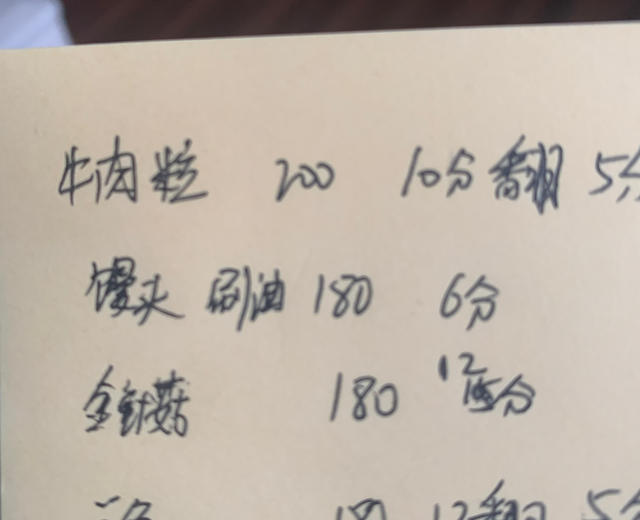 牛肉粒 200 10分翻 5分
馒头 刷油 180 6分
金针菇 180 12分